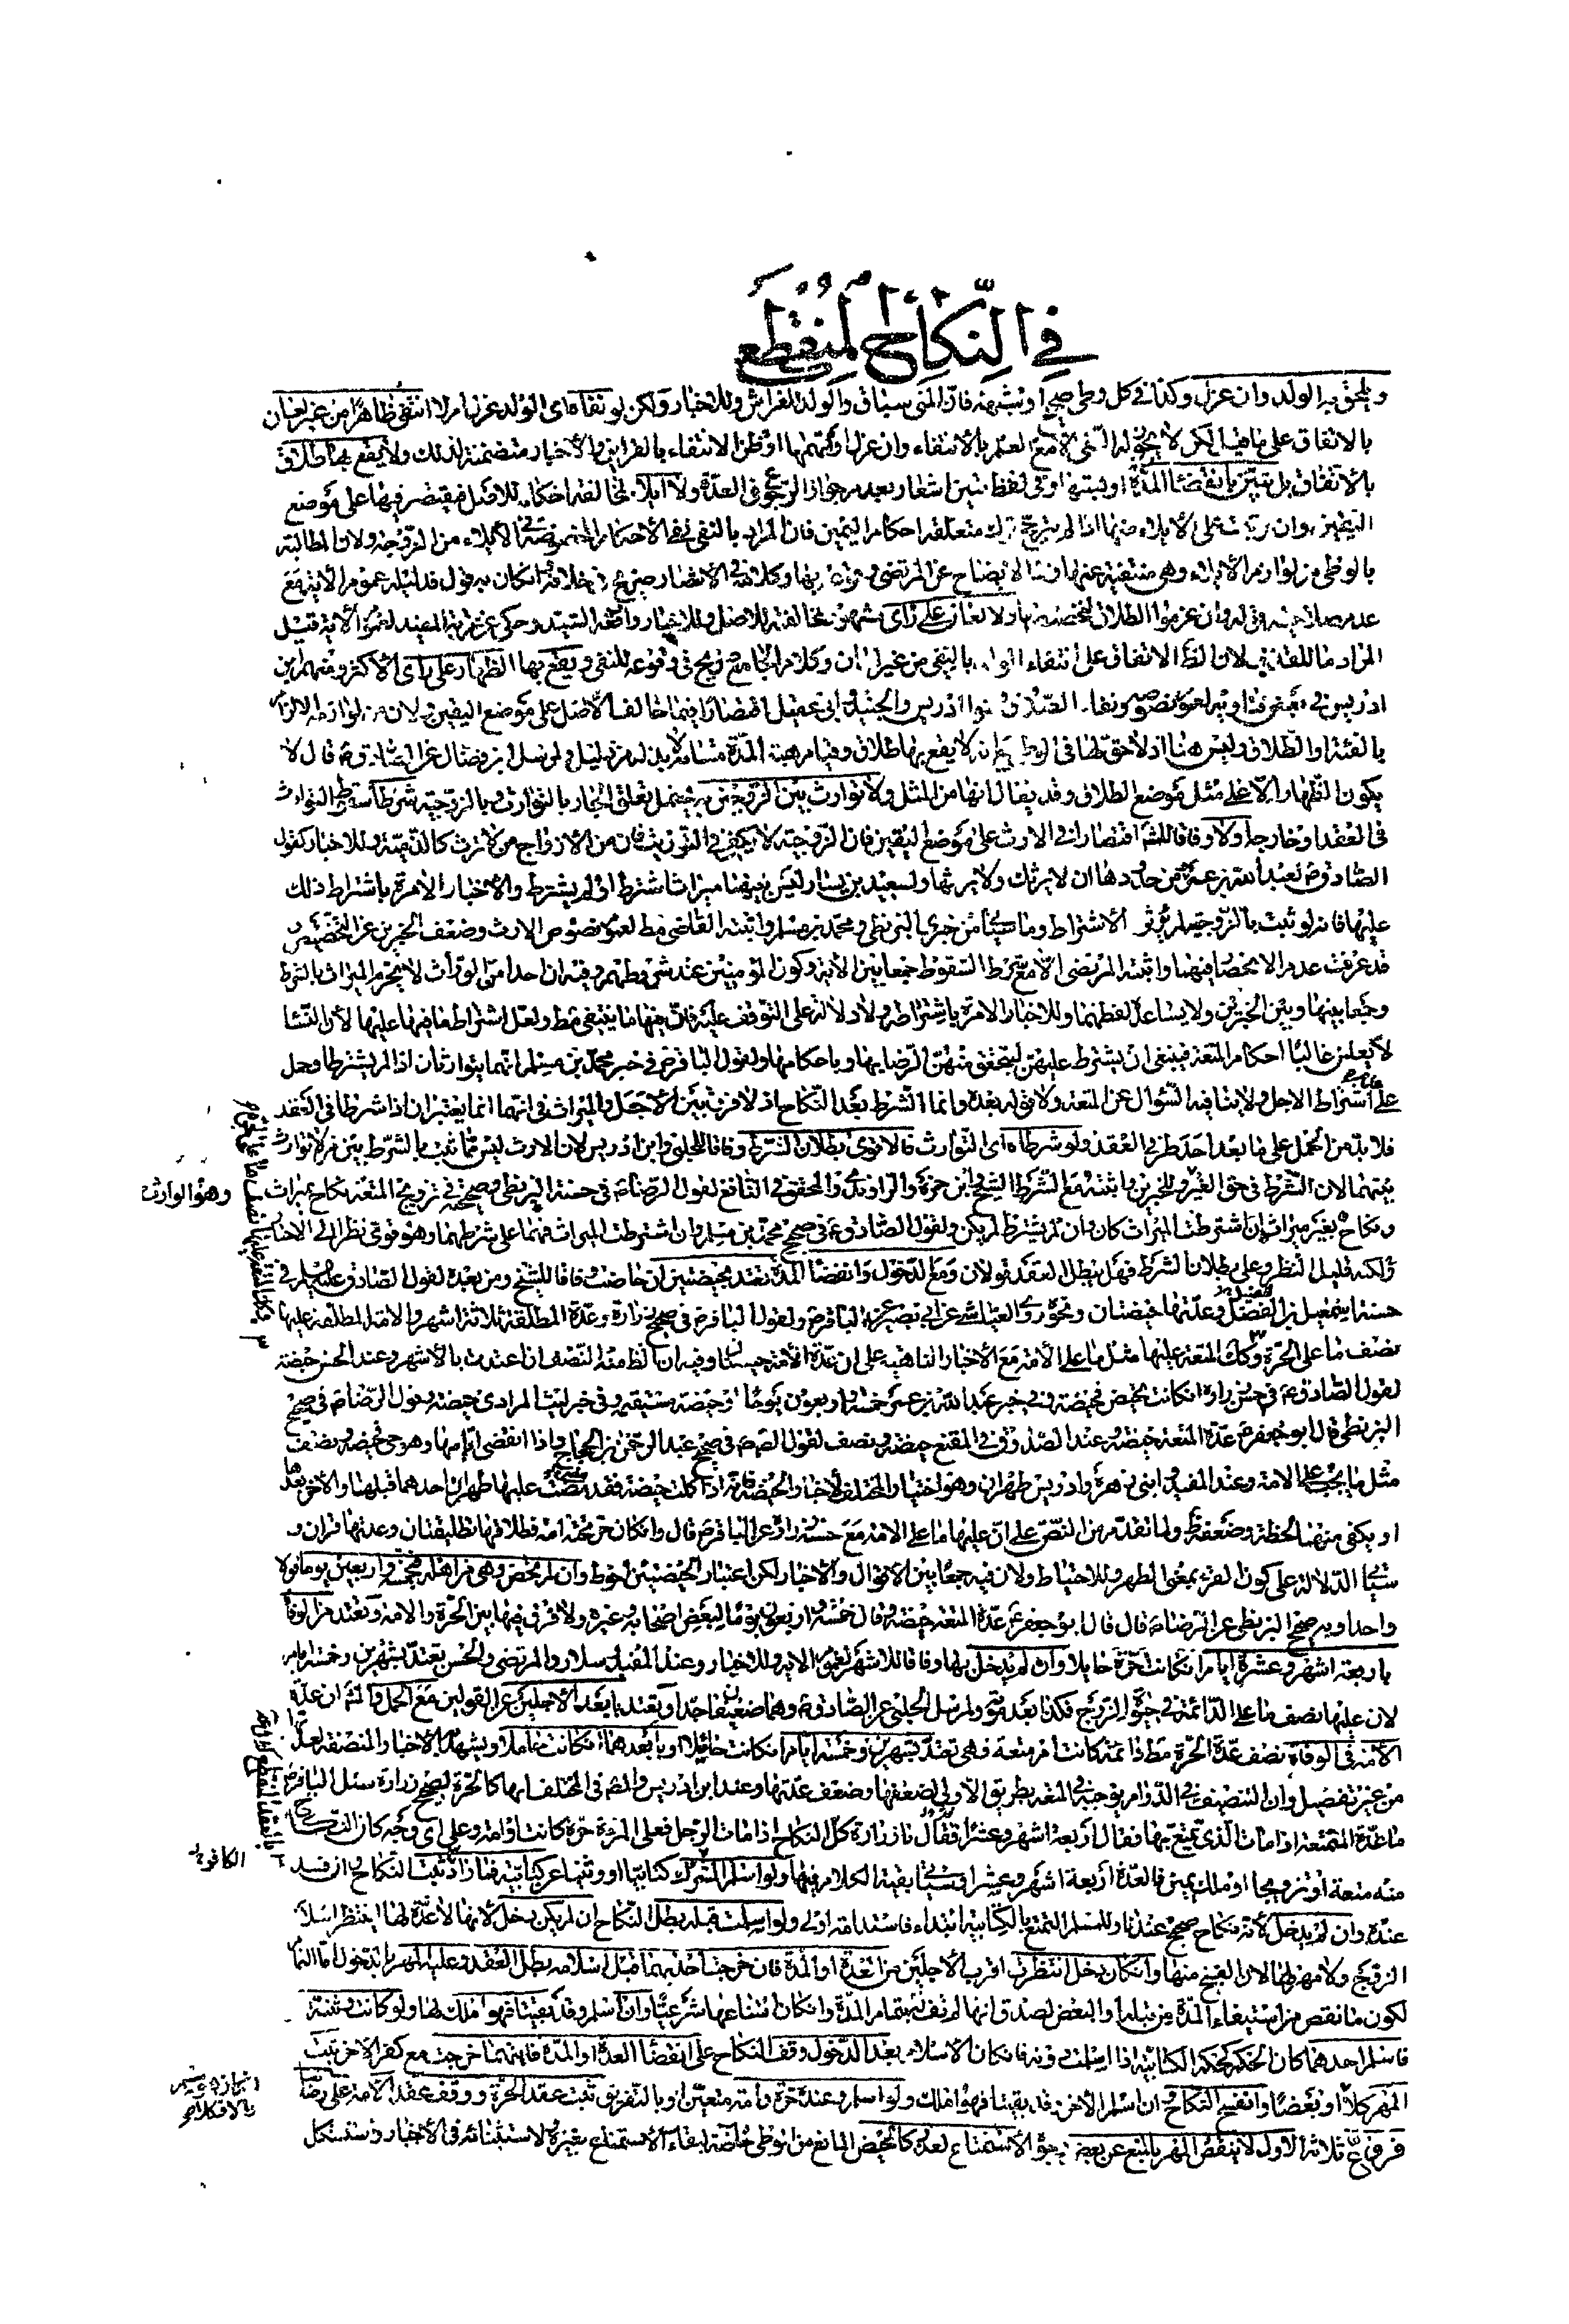 في النكاح المنقطع
ويلحق به الولد وان عزل وكذا في كل وطي صحيح او شبهة فان المني سباق والولد للفراش وللاخبار ولكن لو نفاه اي الولد عزل ام لا انتفى ظاهرا من غير لعان
بالاتفاق على ما قيل لكن لا يجوز له النفي الا مع العلم بالانتفاء وان عزل او اتهمها او ظن الانتفاء بالقراين والاخبار متضمنة لذلك ولا يقع بها طلاق
بالاتفاق بل تبين بانقضاء المدة او بهبتها وفي لفظ تبين اشعار بعدم جواز الرجوع في العدة ولا ايلاء لمخالفته احكام للاصل فيقتصر فيها على موضع
اليقين وان على الايلاء متعلقه احكام اليمين فان المراد بالنفي نفي الاحكام المخصوصة في الايلاء من الزوجة ولان المطالبة
بالوطي من لوازم الايلاء وهي منتفية عنها وفي الايضاح عن المرتضى وقوعه بها وكلامه في الانتصار صريح في خلافه وان كان به قول فدليله عموم الاية مع
عدم صلاحية قوله وان عزموا الطلاق لتخصيصها ولا لعان على راي مشهور لمخالفته للاصل وللاخبار واوقعه السيد وحكي عن غرية المفيد لعموم الاية قيل
المراد ما للقذف لان لفظ الاتفاق على انتفاء الولد بالنفي من غير لعان وكلام الجامع صريح في وقوعه للنفي ويقع بها الظهار على راي الاكثر ومنهم ابن
ادريس في بعض فتاويه لعموم نصوصه ونفاه الصدوق وابنا ادريس والجنيد وابي عقيل اقتصارا فيما خالف الاصل على موضع اليقين ولان من لوازمه الالزام
بالفئة او الطلاق وليس هنا اذ لا حق لها في الوطي مع انه لا يقع بها طلاق وقيام هبة المدة مقامه لا بد له من دليل ولمرسل ابن فضال عن الصادق ع قال لا
يكون الظهار الا على مثل موضع الطلاق وقد يقال انها من المثل ولا توارث بين الزوجين به يحتمل تعلق الجار بالتوارث وبالزوجية شرطا سقوط التوارث
في العقد او خارجا ولا وفاقا للشيخ اقتصارا في الارث على موضع اليقين فان الزوجية لا يكفي في التوريث فان من الازواج من لا ترث كالذمية وللاخبار كقول
الصادق ع لعبد الله بن عمرو من حدودها ان لا ترثك ولا ترثها ولسعيد بن يسار ليس بينهما ميراث اشترط او لم يشترط والاخبار الامرة باشتراط ذلك
عليها فانه لو ثبت بالزوجية لم يؤثر الاشتراط وما سياتي من خبري البزنطي ومحمد بن مسلم واثبته القاضي مط لعموم نصوص الارث وضعف الخبرين عن التخصيص
قد عرفت عدم الانحصار فيهما واثبته المرتضى الا مع شرط السقوط جمعا بين الاية وكون المؤمنين عند شروطهم وفيه ان احدا من الوراث لا يحرم الميراث بالشرط
وجمعا بينها وبين الخبرين ولا يساعده لفظهما وللاخبار الامرة باشتراطه ولا دلالة على التوقف عليه فان منها ما ينبغي مط ولعل اشتراط ما فيها عليها لان النساء
لا يعلمن غالبا احكام المتعة فينبغي ان يشترط عليهن ليتحقق منهن الرضا بها وباحكامها ولقول الباقر ع في خبر محمد بن مسلم انهما يتوارثان اذا لم يشترطا وحمل
على اشتراط الاجل ولا ينافيه السؤال عن المتعة ولا قوله بعده وانما الشرط بعد النكاح اذ لا فرق بين الاجل والميراث في انهما انما يعتبران اذا شرطا في العقد
فلا بد من الحمل على ما بعد احد طرفي العقد ولو شرطاه اي التوارث فالاقوى بطلان الشرط وفاقا للحلبي وابن ادريس لان الارث ليس مما يثبت بالشرط بين من لا توارث
بينهما لان الشرط في حق الغير وللخبرين واثبته مع الشرط الشيخ وابن حمزة والراوندي والمحقق في النافع لقول الرضا ع في حسنة البزنطي وصحيحه في تزويج المتعة نكاح بميراث
ونكاح بغير ميراث ان اشترطت الميراث كان وان لم يشترط لم يكن ولقول الصادق ع في صحيح محمد بن مسلم وان اشترطت الميراث فهما على شرطهما وهو قوي نظرا الى الاخبار
ولكنه قليل النظر وعلى بطلان الشرط فهل يبطل العقد قولان ومع الدخول وانقضاء المدة تعتد بحيضتين ان حاضت وفاقا للشيخ ومن بعده لقول الصادق عليه السلام في
حسنة اسمعيل بن الفضل وعدتها حيضتان ونحوه روى العياشي عن ابي بصير عن الباقر ع ولقول الباقر ع في صحيح زرارة وعدة المطلقة ثلاثة اشهر والامة المطلقة عليها
نصف ما على الحرة وكذلك المتعة عليها مثل ما على الامة مع الاخبار الناهية على ان عدة الامة حيضتان وفيه ان الظاهر منه التنصف اذا اعتدت بالاشهر وعند الحسن حيضة
لقول الصادق ع في حسن زرارة ان كانت تحيض فحيضة وفي خبر عبد الله بن عمرو خمسة واربعون يوما او حيضة مستقيمة وفي خبر ليث المرادي حيضة ولقول الرضا ع في صحيح
البزنطي قال ابو جعفر ع عدة المتعة حيضة وعند الصدوق في المقنع حيضة ونصف لقول الصادق ع في صحيح عبد الرحمن بن الحجاج واذا انقضى ايامها وهو حي فحيضة ونصف
مثل ما يجب على الامة وعند المفيد وابني زهرة وادريس طهران وهو اختيار المختلف لاخبار الحيضة فانه اذا كملت حيضة فقد مضت عليها طهران احدهما قبلها والاخر بعدها
او يكفي منهما لحظة وضعفه ظ ولما تقدم من النص على ان عليها ما على الامة مع حسن زرارة عن الباقر ع قال وان كان حر تحته امة فطلاقها تطليقتان وعدتها قرءان و
سياتي الدلالة على كون القرء بمعنى الطهر وللاحتياط ولان فيه جمعا بين الاقوال والاخبار لكن اعتبار الحيضتين احوط وان لم تحض وهي من اهله فخمسة واربعين يوما قولا
واحدا وبه صحيح البزنطي عن الرضا ع قال قال ابو جعفر ع عدة المتعة حيضة وقال خمسة واربعون يوما لبعض اصحابه وغيره ولا فرق فيها بين الحرة والامة وتعتد من الوفاة
باربعة اشهر وعشرة ايام ان كانت حرة حايلا وان لم يدخل بها وفاقا للاشهر لعموم الاية وللاخبار وعند المفيد وسلار والمرتضى والحسن تعتد بشهرين وخمسة ايام
لان عليها نصف ما على الدائمة في حيوة الزوج فكذا بعد موته ولمرسل الحلبي عن الصادق ع وهما ضعيفان جدا وتعتد بابعد الاجلين على القولين مع الحمل والمش ان عدة
الامة في الوفاة نصف عدة الحرة مط دائمة كانت ام متعة فهي تعتد بشهرين وخمسة ايام ان كانت حائلا او بابعدهما ان كانت حاملا ويشهد له الاخبار المنصفة لعدتها
من غير تفصيل وان التنصيف في الدوام يوجبه في المتعة بطريق الاولى لضعفها وضعف عدتها وعند ابن ادريس والمص في المختلف انها كالحرة لصحيح زرارة سئل الباقر ع
ما عدة المتعة اذا مات الذي تمتع بها فقال اربعة اشهر وعشرا ثم قال يا زرارة كل النكاح اذا مات الرجل فعلى المراة حرة كانت او امة وعلى اي وجه كان النكاح
منه متعة او تزويجا او ملك يمين فالعدة اربعة اشهر وعشرا وسياتي بقية الكلام فيها ولو اسلم المشرك كتابيا او وثنيا عن كتابية فما زاد ثبت النكاح وان فسد
عنده وان لم يدخل لانه نكاح صحيح عندنا وللمسلم التمتع بالكتابية ابتداء فاستدامته اولى ولو اسلمت قبله بطل النكاح ان لم يكن دخل لانها لا عدة لها لينتظر اسلام
الزوج ولا مهر لها لان الفسخ منها وان كان دخل انتظرنا اقرب الاجلين من العدة او المدة فان خرجت احديهما قبل اسلامه بطل العقد وعليه المهر بالدخول اما التام
لكون ما نقص من استيفاء المدة من قبله او البعض لصدق انها لم تف له بتمام المدة وان كان امتناعها شرعيا وان اسلم وقد بقيتا فهو املك لها ولو كانت وثنية
فاسلم احدهما كان الحكم كحكم الكتابية اذا اسلمت دونه فان كان الاسلام بعد الدخول وقف النكاح على انقضاء العدة او المدة فايتهما خرجت مع كفر الاخر ثبت
المهر كلا او بعضا وانفسخ النكاح وان اسلم الاخر وقد بقيتا فهو املك ولو اسلم وعنده حرة وامة متعتين او بالتفريق ثبت عقد الحرة ووقف عقد الامة على رضا
فروع ثلاثة الاول لا ينقص المهر بالمنع عن بعض وجوه الاستمتاع لعذر كالحيض المانع من الوطي خاصة لبقاء الاستمتاع بغيره ولاستثنائه في الاخبار وقد يشكل
وهو الوارث
الكافر